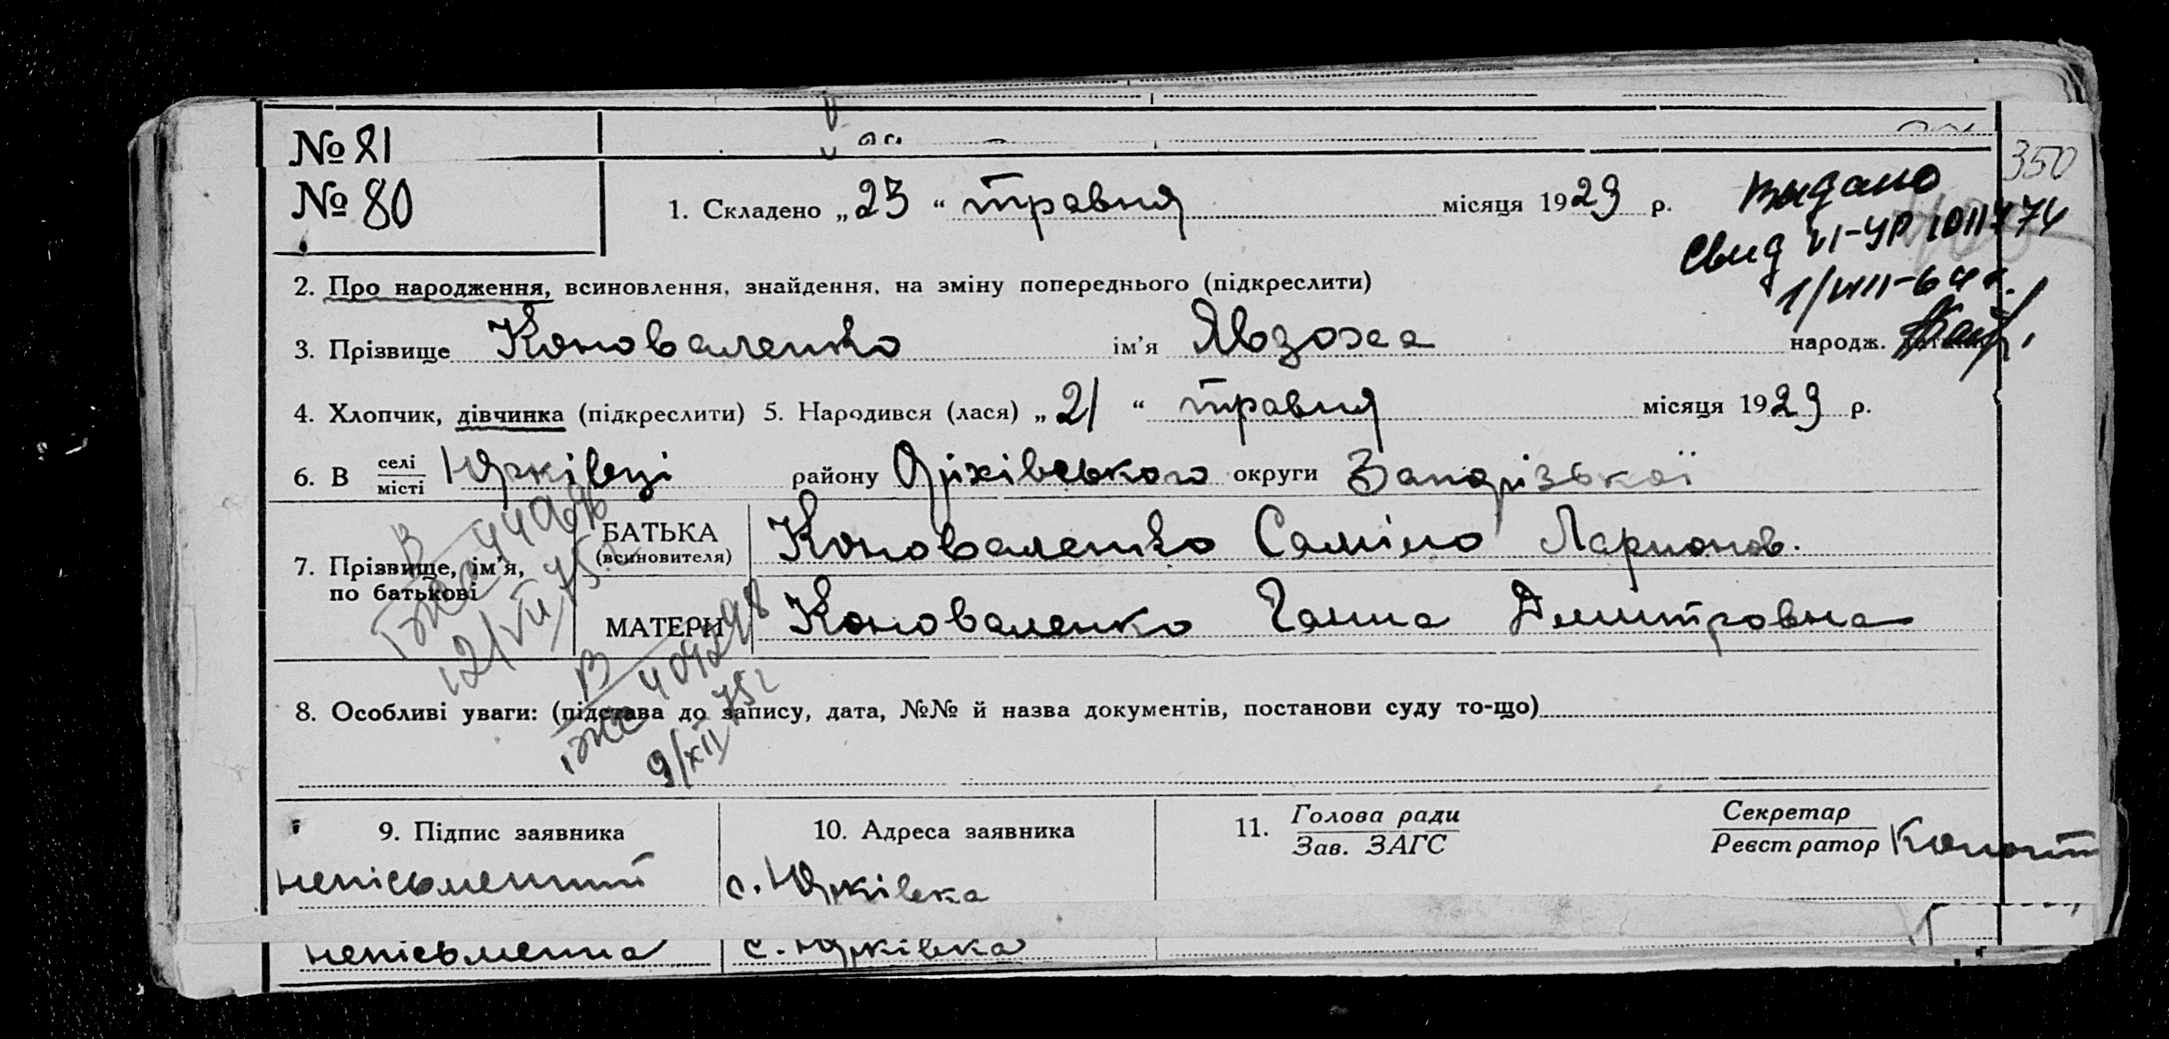 № 81
№ 80
1. Складено „23“ травня місяця 1929 р.
Видано
350
свид VI-УР
2. Про народження, всиновлення, знайдення, на зміну попереднього (підкреслити)
3. Прізвище Коноваленко ім'я народж.
4. Хлопчик, дівчинка (підкреслити) 5. Народився (лася) „21“ травня місяця 1929 р.
6. В селі місті Юрківці району Оріхівського округи Запорізької
7. Прізвище, ім'я, по батькові
БАТЬКА (всиновителя) Коноваленко Ларионов.
МАТЕРИ Коноваленко Ганна Дмитровна
8. Особливі уваги: (підстава до запису, дата, №№ й назва документів, постанови суду то-що)
9/XII 75 г
9. Підпис заявника
10. Адреса заявника
11. Голова ради Зав. ЗАГС
Секретар Реєстратор
неписьменний
с. Юрківка
неписьменна
с. Юрківка